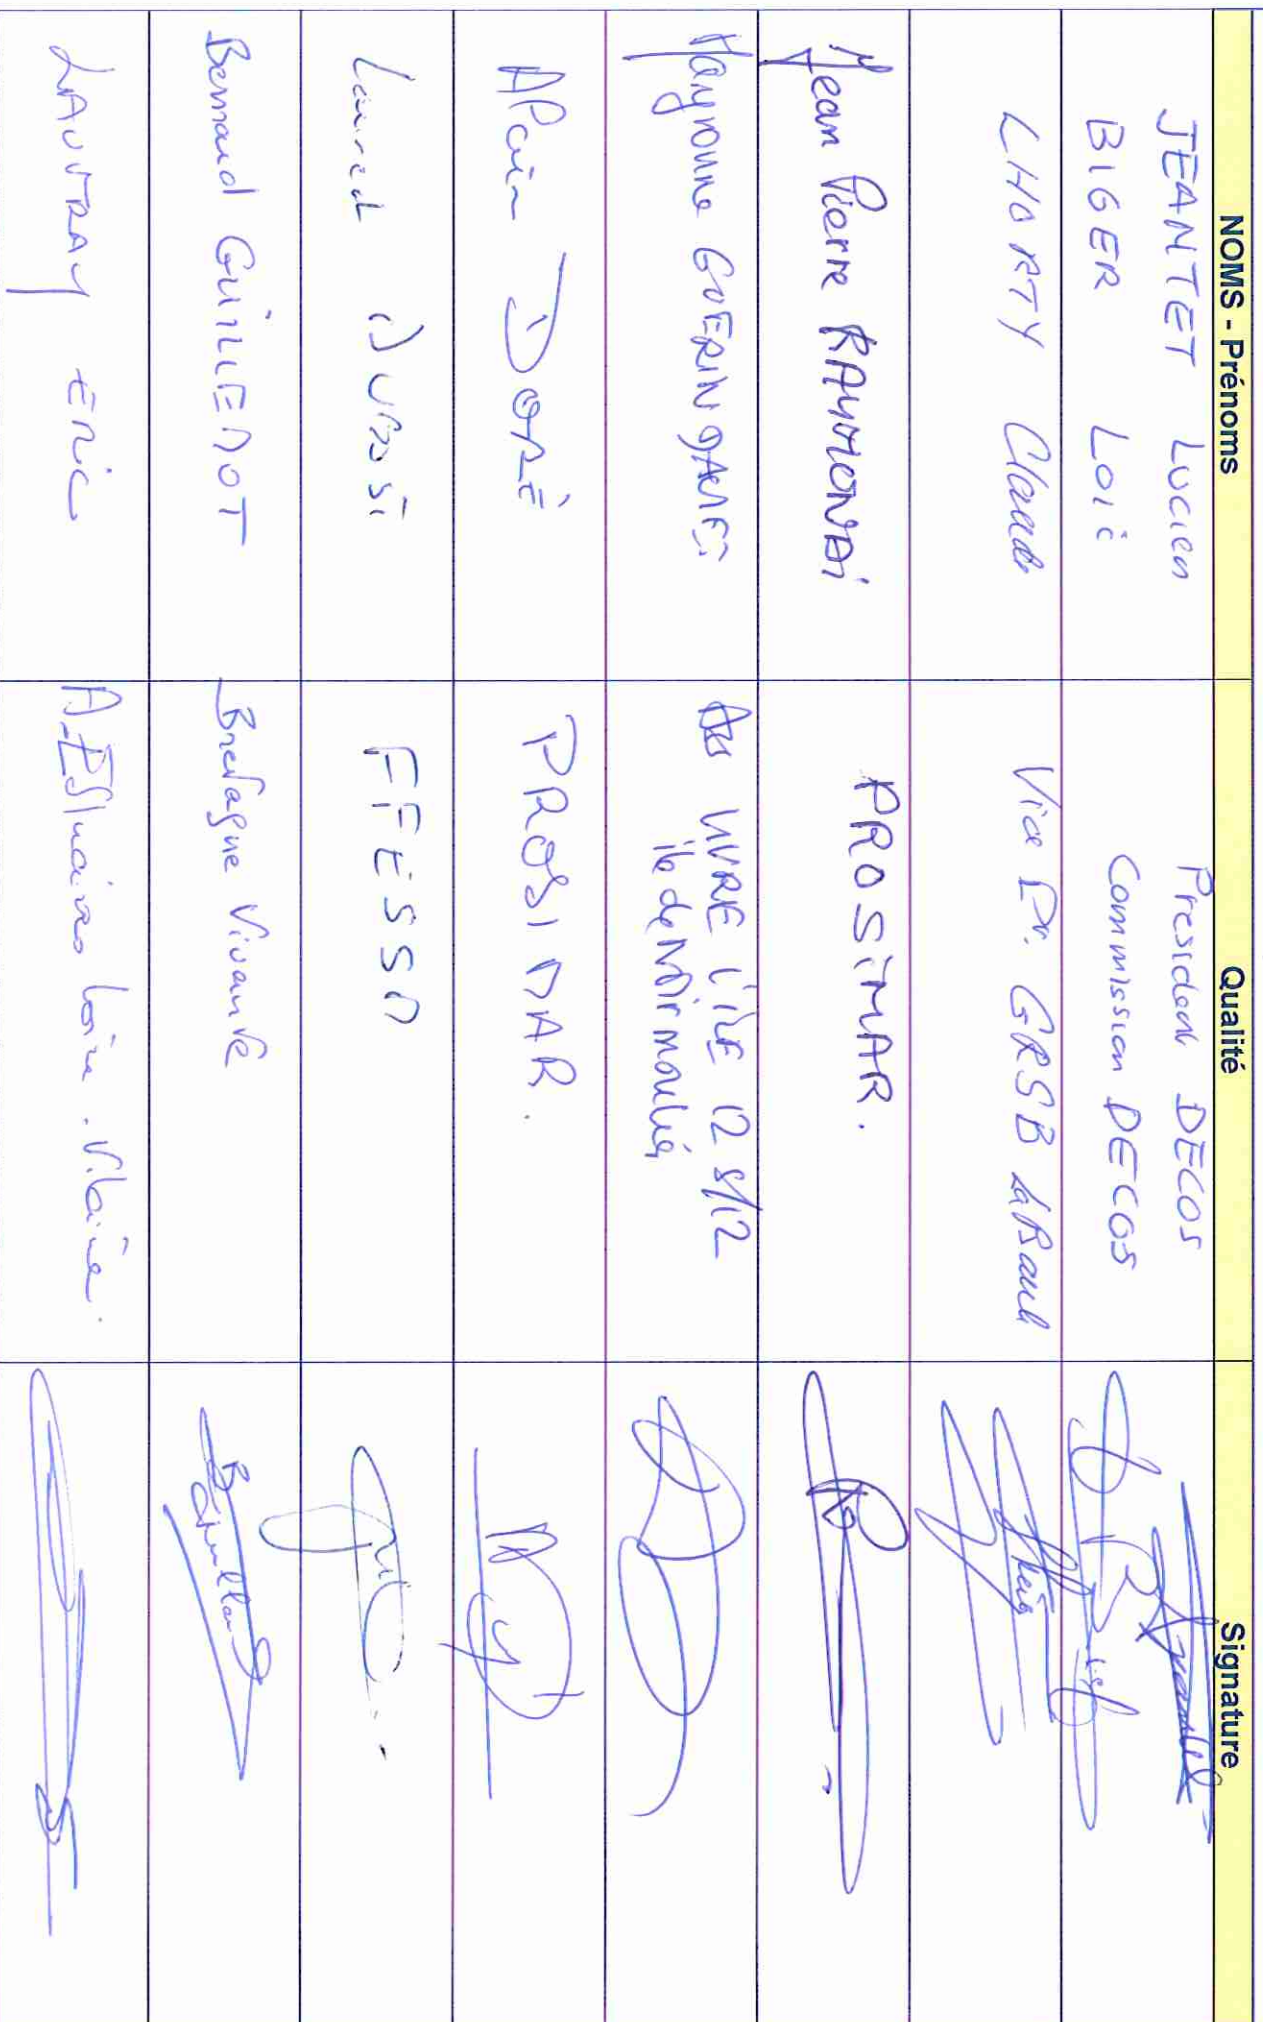 NOMS - Prénoms Qualité Signature
JEANTET Lucien President DECOS
BIGER Loïc Commission DECOS
LHORTY Claude Vice Pr. GRSB La Baule
Jean Pierre PROSIMAR.
Mayvonne GUERIN VIVRE L'ILE 12 S/12
île de Noirmoutier
Alain DORÉ PROSIMAR.
FFESSM
Bernard GUILLEMOT Bretagne Vivante
LAUTRAY ERIC A. Estuaires Loire. Vilaine.